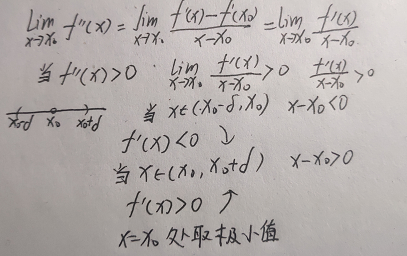 lim x→x₀ f''(x) = lim x→x₀ f'(x)-f'(x₀) / x-x₀ = lim x→x₀ f'(x) / x-x₀
当 f''(x)>0 lim x→x₀ f'(x) / x-x₀ >0 f'(x) / x-x₀ >0
x₀-d x₀ x₀+d 当 x∈(x₀-δ,x₀) x-x₀<0
f'(x)<0 ↘
当 x∈(x₀,x₀+d) x-x₀>0
f'(x)>0 ↗
x=x₀ 处取极小值